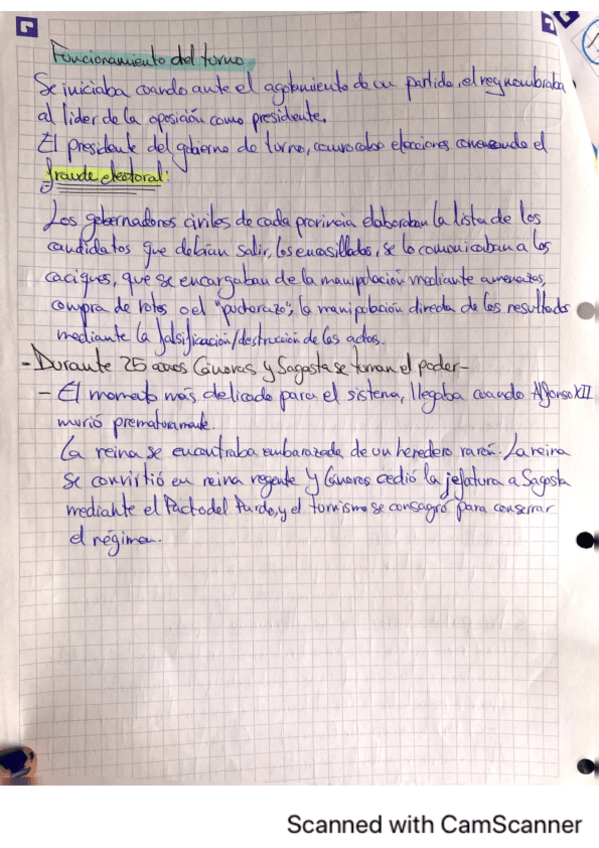 Funcionamiento del turno.
Se iniciaba cuando ante el agotamiento de un partido, el rey nombraba
al líder de la oposición como presidente.
El presidente del gobierno de turno, convocaba elecciones comenzando el
fraude electoral:
Los gobernadores civiles de cada provincia elaboraban la lista de los
candidatos que debían salir, los encasillados, se lo comunicaban a los
caciques, que se encargaban de la manipulación mediante amenazas,
compra de votos o el "pucherazo"; la manipulación directa de los resultados
mediante la falsificación/destrucción de las actas.
- Durante 25 años Cánovas y Sagasta se turnan el poder-
- El momento más delicado para el sistema, llegaba cuando Alfonso XII
murió prematuramente.
La reina se encontraba embarazada de un heredero varón. La reina
se convirtió en reina regente y Cánovas cedió la jefatura a Sagasta
mediante el Pacto del Pardo, y el turnismo se consagró para conservar
el régimen.
Scanned with CamScanner